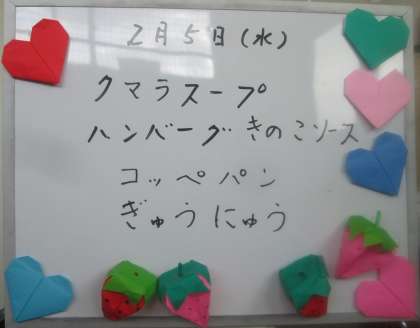 2月5日(水)
クマラスープ
ハンバーグきのこソース
コッペパン
ぎゅうにゅう